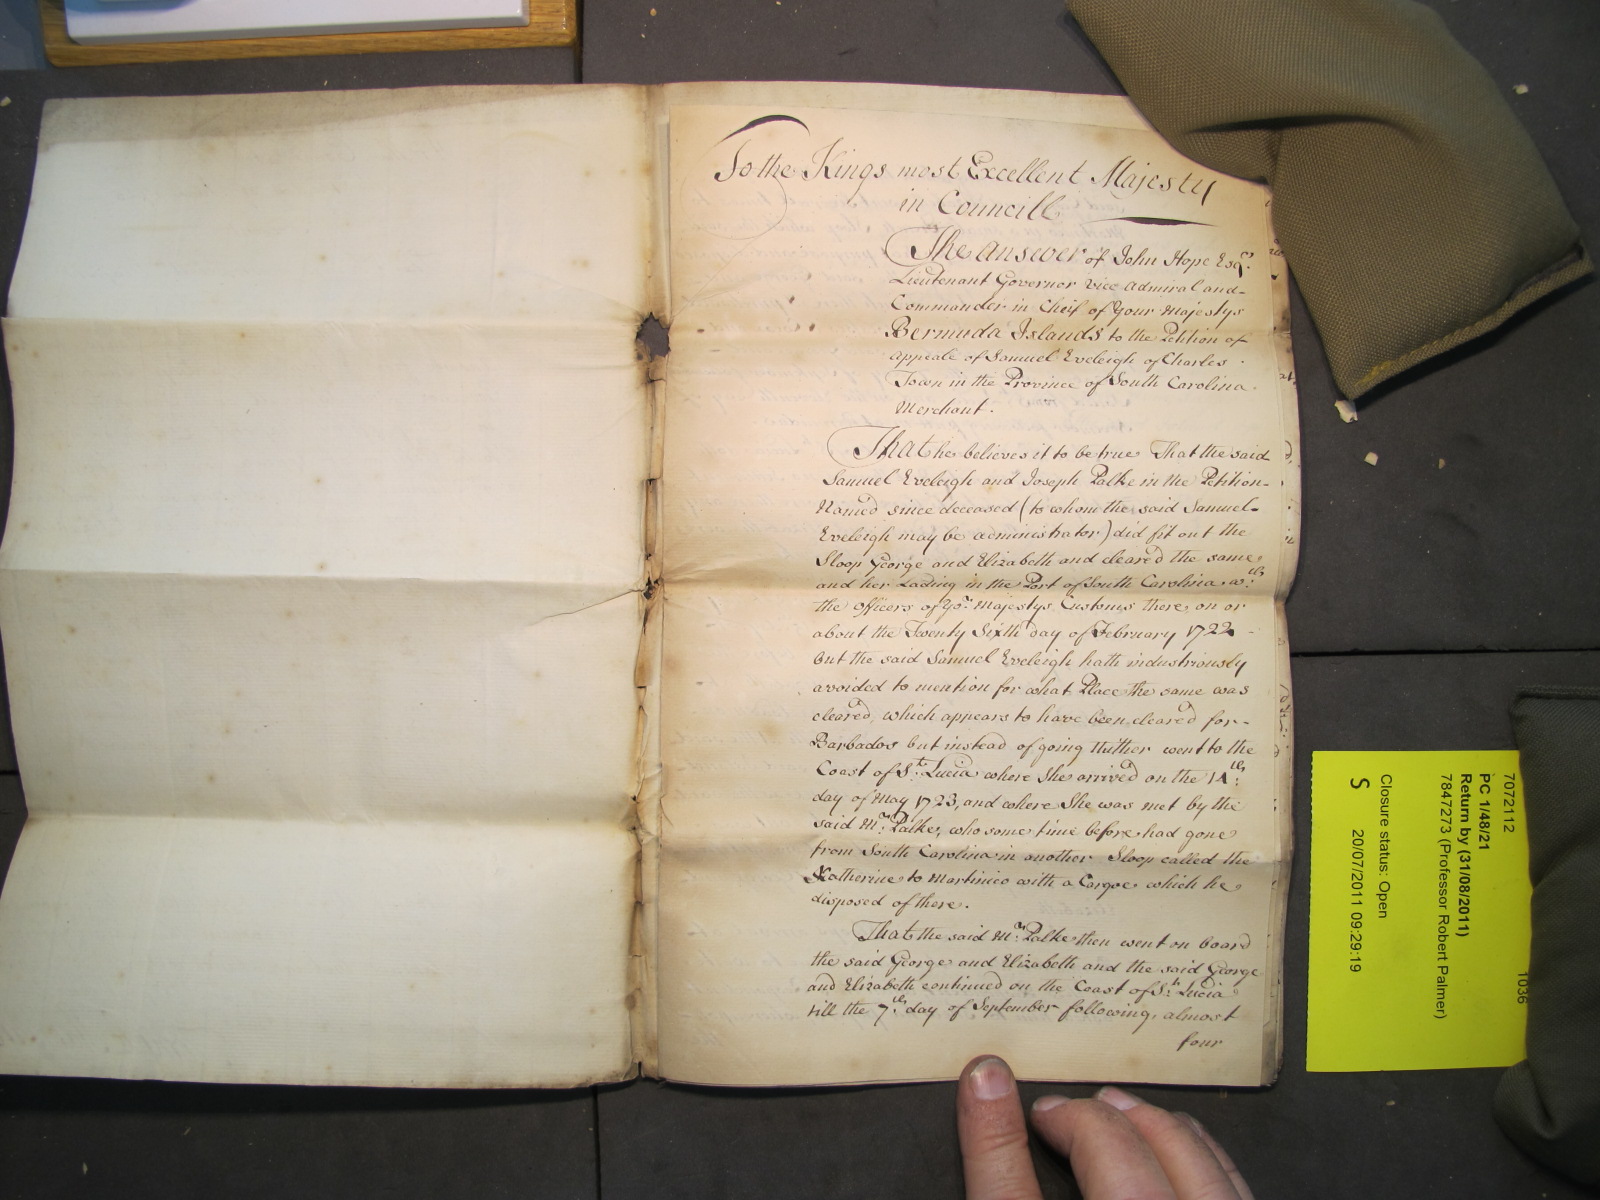 To the Kings most Excellent Majesty
in Councill
The Answer of John Hope Esqr.
Lieutenant Governor Vice Admiral and
Commander in Cheif of Your Majestys
Bermuda Islands to the Petition of
Appeale of Samuel Eveleigh of Charles
Town in the Province of South Carolina
Merchant.
That he believes it to be true That the said
Samuel Eveleigh and Joseph Palke in the Petition
Named since deceased (to whom the said Samuel
Eveleigh may be administrator) did fit out the
Sloop George and Elizabeth and cleared the same
and her Lading in the Port of South Carolina wth.
the Officers of Yor. Majestys Customs there on or
about the Twenty Sixth day of February 1722
but the said Samuel Eveleigh hath industriously
avoided to mention for what Place the same was
cleared, which appears to have been cleared for
Barbados but instead of going thither went to the
Coast of St. Lucia where She arrived on the 14th.
day of May 1723, and where She was met by the
said Mr. Palke, who some time before had gone
from South Carolina in another Sloop called the
Katherine to Martinico with a Cargoe which he
disposed of there.
That the said Mr. Palke then went on board
the said George and Elizabeth and the said George
and Elizabeth continued on the Coast of St. Lucia
till the 7th. day of September following, almost
four
7072112
1036
PC 1/48/21
Return by (31/08/2011)
7847273 (Professor Robert Palmer)
Closure status: Open
S 20/07/2011 09:29:19